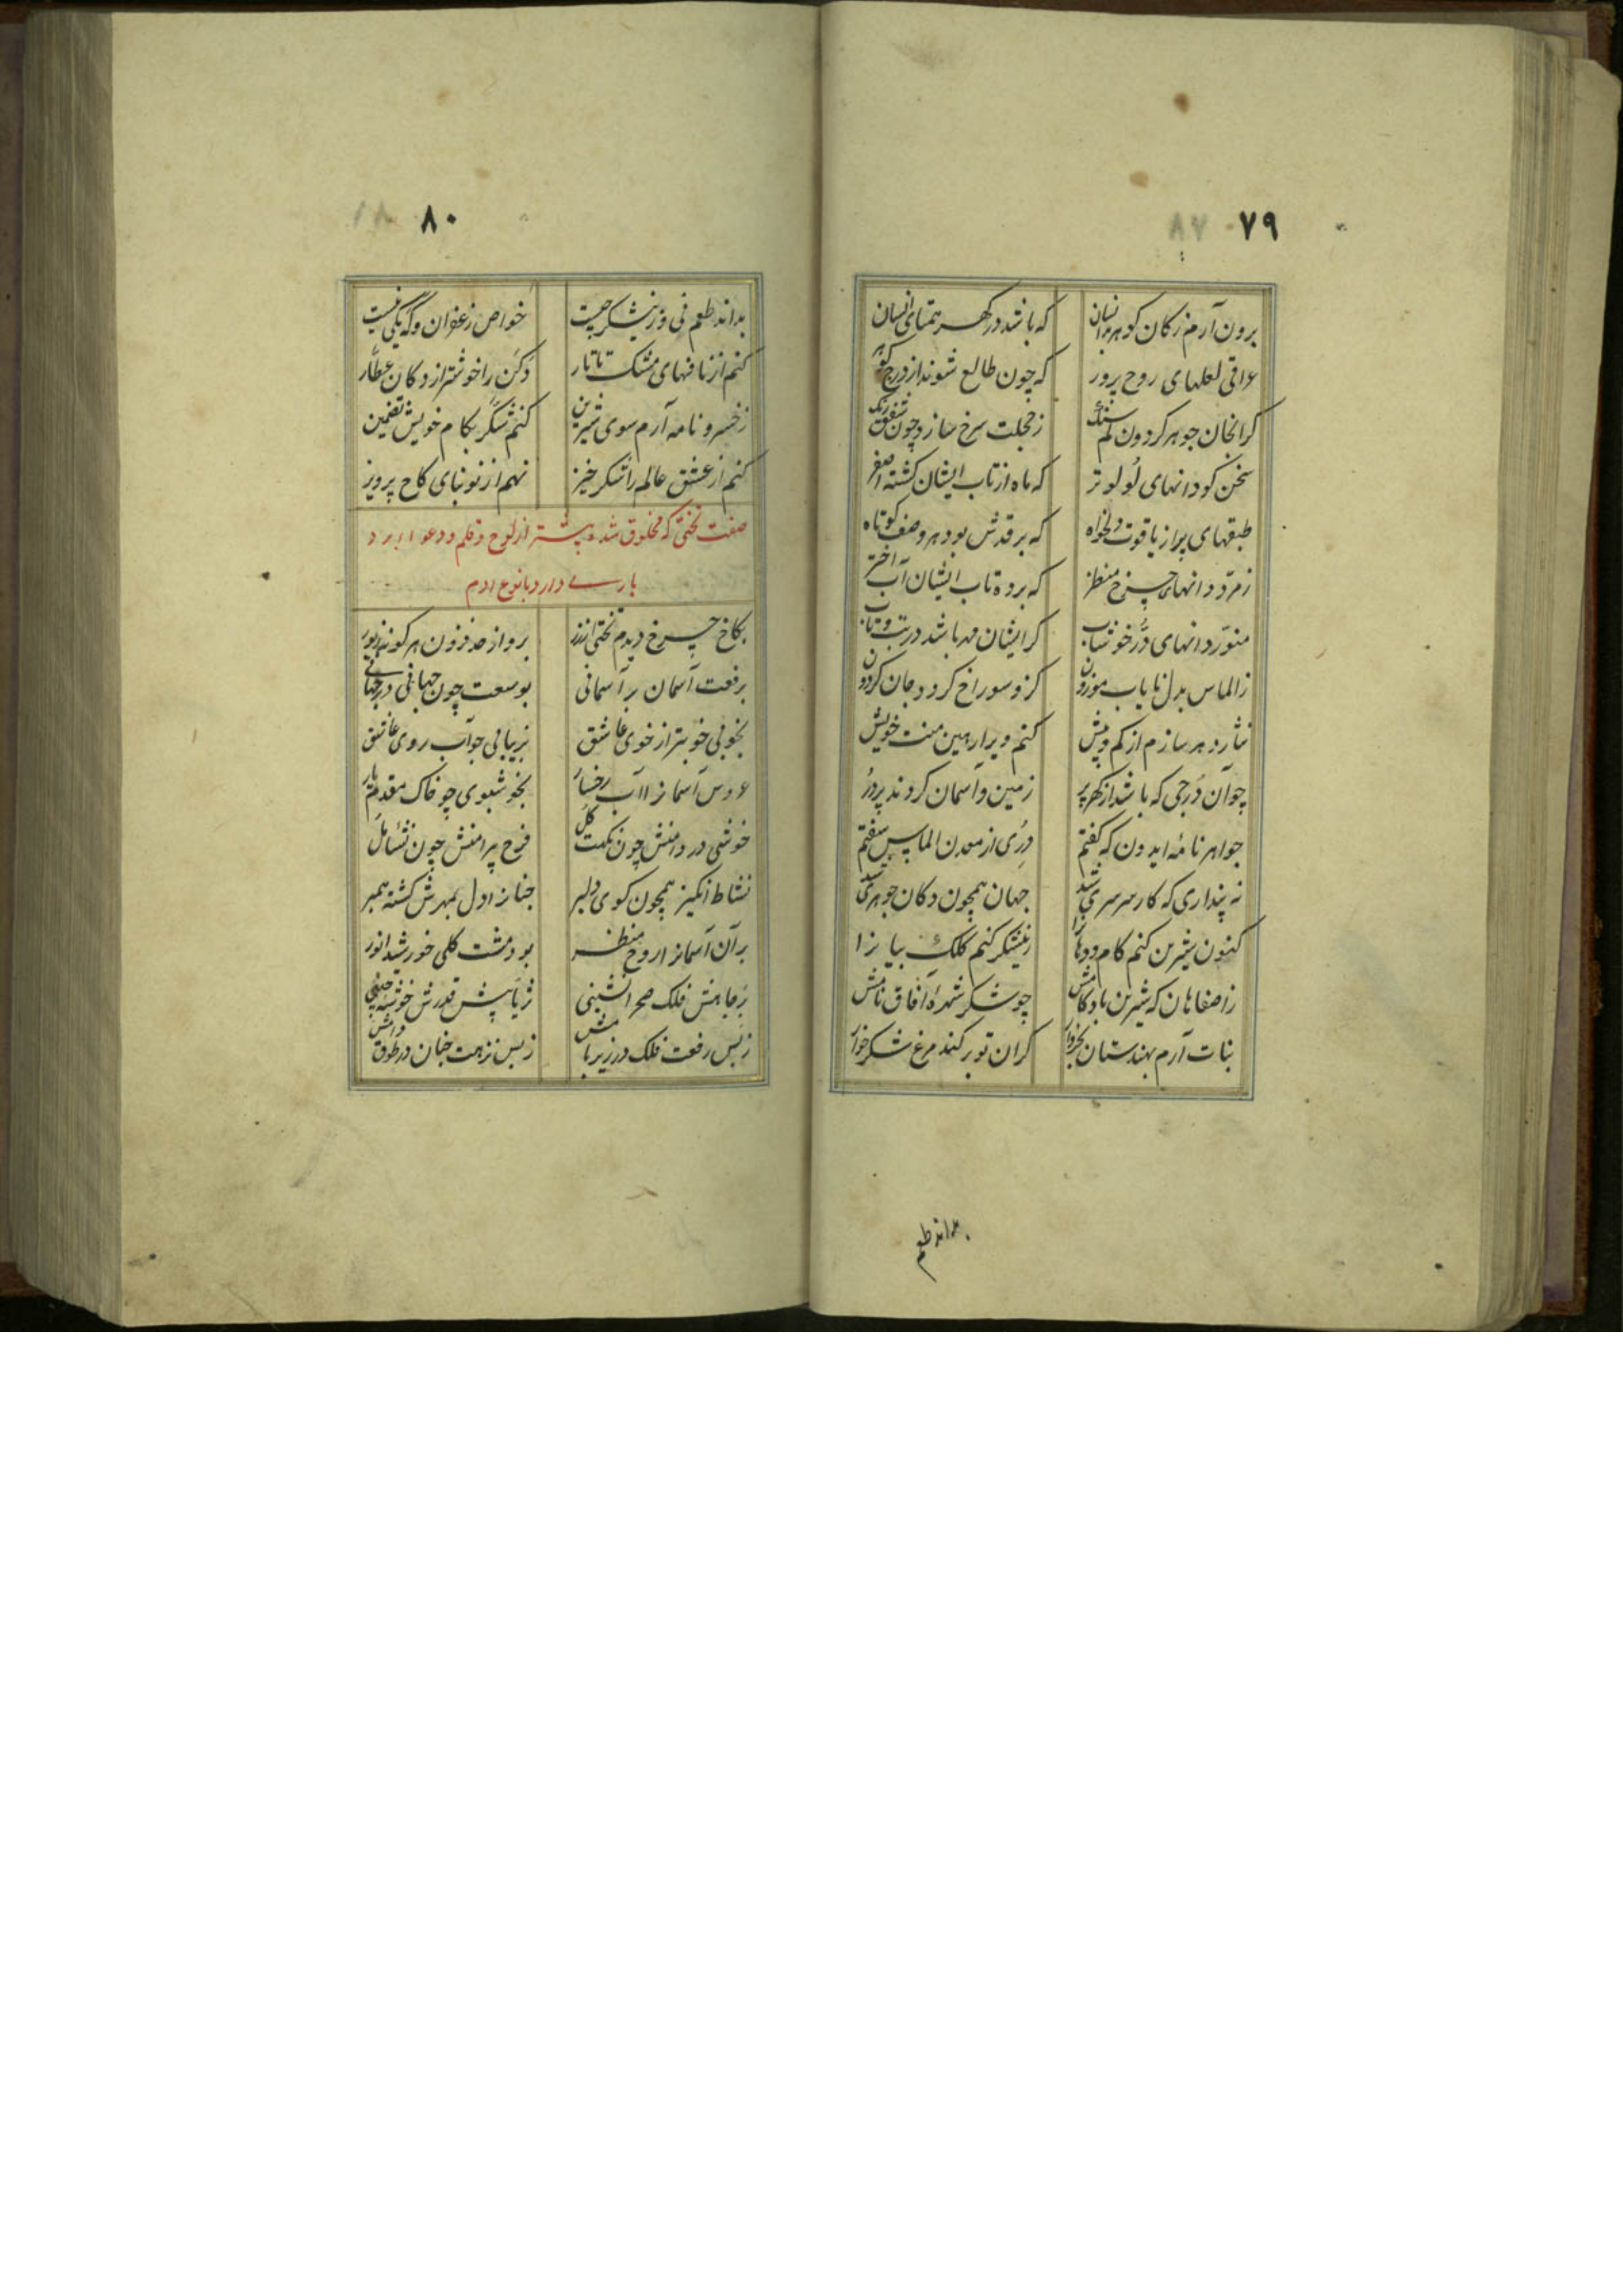 ۷۹
برون آرم ز کان گوهر انسان که باشد در گهر همتای انسان
عراقی لعلهای روح پرور که چون طالع شوند از درج گوهر
گرانجان جوهر گردون کم سنگ ز خجلت سرخ سازد چون شفق رنگ
سخن گو دانهای لولو تر که ماه از تاب ایشان گشته اصفر
طبقهای پر از یاقوت دلخواه که بر قدش بود هر وصف کوتاه
زمرّد دانهای چرخ منظر که برده تاب ایشان آب اختر
منوّر دانهای دُر خوشاب کز ایشان مه باشد در تب و تاب
ز الماس بدل نایاب موزون کزو سوراخ گردد جان گردون
نثار دهر سازم از کم و بیش کنم ویرا رهین منت خویش
چو آن دُرجی که باشد از گهر پر زمین و آسمان گردند پر دُر
جواهر نامه ایدون که گفتم دُری از معدن الماس سفتم
نه پنداری که کار سرسری شد جهان همچون دکان جوهری شد
کنون شیرین کنم کام و دهانرا ز نیشکر کنم کلک بیانرا
ز اصفاهان که شیرین باد کامش چو شکر شهره آفاق نامش
نبات آرم بهندستان بخروار کز آن نوبر کند مرغ شکرخوار
بداند طعم
۸۰
بداند طعم نی و نیشکر چیست خواص زعفران و گه یکی نیست
کنم از نافهای مشک تاتار دکن را خوشتر از دکان عطّار
ز خسرو نامه آرم سوی شیرین کنم شکّر بکام خویش تضمین
کنم از عشق عالم را شکرخیز نهم از نو بنای کاخ پرویز
صفت تختی که مخلوق شده پیشتر از لوح و قلم و دعوا
دارد با نوع آدم
بکاخ چرخ دیدم تختی از زر برو از حد فزون هر گونه زیور
برفعت آسمان بر آسمانی بوسعت چون جهانی در جهانی
بخوبی خوبتر از خوی عاشق بزیبایی چو آب روی عاشق
عروس آسمانرا آب رخسار بخوشبوی چو خاک مقدم یار
خوشی در دامنش چون نکهت گل فرح پیرامنش چون نشئا مل
نشاط انگیز همچون کوی دلبر جنانرا دل بمهرش گشته همبر
بر آن آسمانرا روح منظر بود مشت گلی خورشید انور
ز جاهش فلک صحرا نشینی ثریا پیش قدرش خوشه چینی
ز بس رفعت فلک در زیر بامش ز بس نزهت جنان در طوق دامش